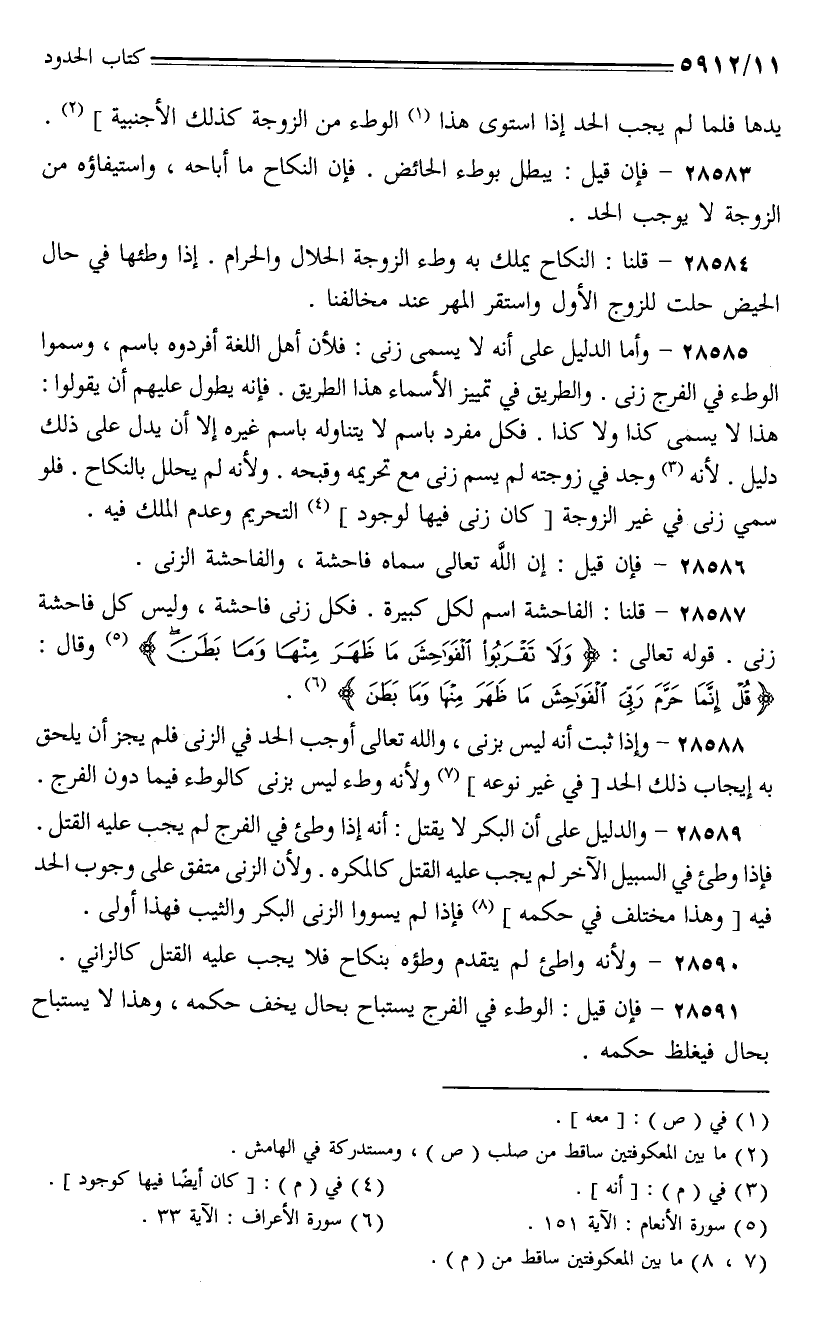 ٥٩١٢/١١ كتاب الحدود
يدها فلما لم يجب الحد إذا استوى هذا (١) الوطء من الزوجة كذلك الأجنبية ] (٢) .
٢٨٥٨٣ – فإن قيل : يبطل بوطء الحائض . فإن النكاح ما أباحه ، واستيفاؤه من
الزوجة لا يوجب الحد .
٢٨٥٨٤ – قلنا : النكاح يملك به وطء الزوجة الحلال والحرام . إذا وطئها في حال
الحيض حلت للزوج الأول واستقر المهر عند مخالفنا .
٢٨٥٨٥ – وأما الدليل على أنه لا يسمى زنى : فلأن أهل اللغة أفردوه باسم ، وسموا
الوطء في الفرج زنى . والطريق في تمييز الأسماء هذا الطريق . فإنه يطول عليهم أن يقولوا :
هذا لا يسمى كذا ولا كذا . فكل مفرد باسم لا يتناوله باسم غيره إلا أن يدل على ذلك
دليل . لأنه (٣) وجد في زوجته لم يسم زنى مع تحريمه وقبحه . ولأنه لم يحلل بالنكاح . فلو
سمي زنى في غير الزوجة [ كان زنى فيها لوجود ] (٤) التحريم وعدم الملك فيه .
٢٨٥٨٦ – فإن قيل : إن اللَّه تعالى سماه فاحشة ، والفاحشة الزنى .
٢٨٥٨٧ – قلنا : الفاحشة اسم لكل كبيرة . فكل زنى فاحشة ، وليس كل فاحشة
زنى . قوله تعالى : ﴿ وَلَا تَقْرَبُوا۟ ٱلْفَوَٰحِشَ مَا ظَهَرَ مِنْهَا وَمَا بَطَنَ ۖ ﴾ (٥) وقال :
﴿ قُلْ إِنَّمَا حَرَّمَ رَبِّىَ ٱلْفَوَٰحِشَ مَا ظَهَرَ مِنْهَا وَمَا بَطَنَ ﴾ (٦) .
٢٨٥٨٨ – وإذا ثبت أنه ليس بزنى ، والله تعالى أوجب الحد في الزنى فلم يجز أن يلحق
به إيجاب ذلك الحد [ في غير نوعه ] (٧) ولأنه وطء ليس بزنى كالوطء فيما دون الفرج .
٢٨٥٨٩ – والدليل على أن البكر لا يقتل : أنه إذا وطئ في الفرج لم يجب عليه القتل .
فإذا وطئ في السبيل الآخر لم يجب عليه القتل كالمكره . ولأن الزنى متفق على وجوب الحد
فيه [ وهذا مختلف في حكمه ] (٨) فإذا لم يسووا الزنى البكر والثيب فهذا أولى .
٢٨٥٩٠ – ولأنه واطئ لم يتقدم وطؤه بنكاح فلا يجب عليه القتل كالزاني .
٢٨٥٩١ – فإن قيل : الوطء في الفرج يستباح بحال يخف حكمه ، وهذا لا يستباح
بحال فيغلظ حكمه .
(١) في ( ص ) : [ معه ] .
(٢) ما بين المعكوفتين ساقط من صلب ( ص ) ، ومستدركة في الهامش .
(٣) في ( م ) : [ أنه ] . (٤) في ( م ) : [ كان أيضًا فيها كوجود ] .
(٥) سورة الأنعام : الآية ١٥١ . (٦) سورة الأعراف : الآية ٣٣ .
(٧ ، ٨) ما بين المعكوفتين ساقط من ( م ) .